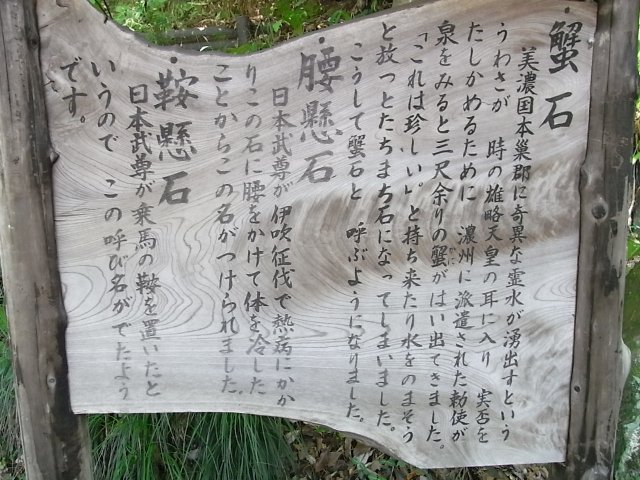 蟹石
美濃国本巣郡に奇異な霊水が湧出すという
うわさが 時の雄略天皇の耳に入り 実否を
たしかめるために 濃州に派遣された勅使が
泉をみると三尺余りの蟹がはい出てきました。
「これは珍しい」と持ち来たり水をのまそう
と放つとたちまち石になってしまいました。
こうして蟹石と 呼ぶようになりました。
腰懸石
日本武尊が 伊吹征伐で熱病にかか
りこの石に腰をかけて体を冷した
ことからこの名がつけられました。
鞍懸石
日本武尊が乗馬の鞍を置いたと
いうので この呼び名がでたよう
です。